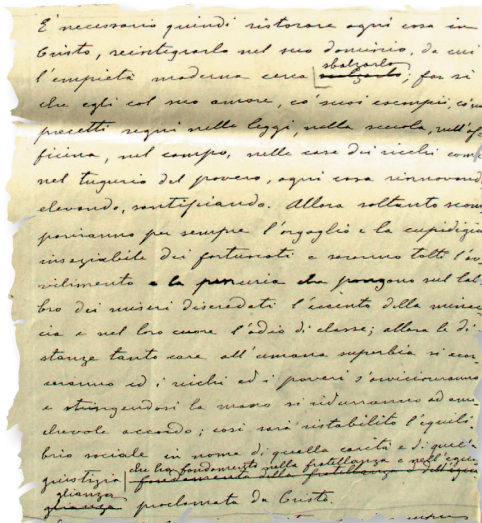 È necessario quindi ristorare ogni cosa in
Cristo, reintegrarlo nel suo dominio, da cui
sbalzarlo
l'empietà moderna cerca; far sì
che egli col suo amore, co' suoi esempii, co' suoi
precetti regni nelle leggi, nella scuola, nell'of
ficina, nel campo, nelle case dei ricchi come
nel tugurio del povero, ogni cosa rinnovando,
elevando, santificando. Allora soltanto scom
pariranno per sempre l'orgoglio e la cupidigia
insaziabile dei fortunati e saranno tolti l'av
vilimento e la penuria che pongono sul lab
bro dei miseri diseredati l'accento della minac
cia e nel loro cuore l'odio di classe; allora le di
stanze tanto care all'umana superbia si
ceranno ed i ricchi ed i poveri s'avvicineranno
e stringendosi la mano si ridurranno ad ami
chevole accordo; così sarà ristabilito l'equili
brio sociale in nome di quella carità e di quella
che ha fondamento nella fratellanza e nell'egua
giustizia fondamento della fratellanza e dell'egua
glianza
glianza proclamata da Cristo.